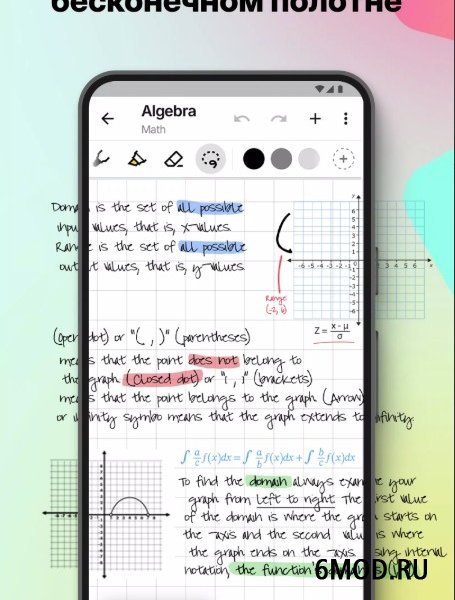 бесконечном полотне
Algebra
Math
Domain is the set of all possible
input values, that is, x-values
Range is the set of all possible
output values, that is, y-values
Range
(-2, 6)
Z = x - μ
σ
(Open dot) or "( , )" (parentheses)
means that the point does not belong to
the graph (Closed dot) or "[ , ]" (brackets)
means that the point belongs to the graph (Arrow)
or infinity symbo means that the graph extends to infinity.
∫ a/c f(x)dx = ∫ a/b f(x)dx + ∫ b/c f(x)dx
To find the domain always examine your
graph from left to right The first value
of the domain is where the graph starts on
the -axis and the second value is where
the graph ends on the -axis using interval
notation, the function's
6MOD.RU